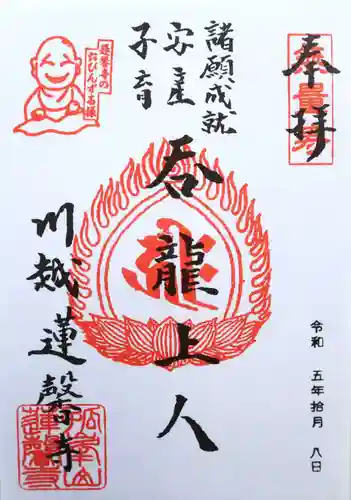 奉拝
諸願成就
安産
子育
呑龍上人
川越蓮馨寺
蓮馨寺の
おびんずる様
令和 五年拾月 八日